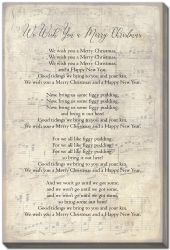 We Wish You a Merry Christmas
We wish you a Merry Christmas,
We wish you a Merry Christmas,
We wish you a Merry Christmas,
and a Happy New Year.
Good tidings we bring to you and your kin,
We wish you a Merry Christmas and a Happy New Year.
Now bring us some figgy pudding,
Now bring us some figgy pudding,
Now bring us some figgy pudding,
and bring it out here!
Good tidings we bring to you and your kin,
We wish you a Merry Christmas and a Happy New Year.
For we all like figgy pudding,
For we all like figgy pudding,
For we all like figgy pudding,
so bring it out here!
Good tidings we bring to you and your kin,
We wish you a Merry Christmas and a Happy New Year.
And we won't go until we got some,
and we won't go until we got some,
and we won't go until we got some,
so bring some out here!
Good tidings we bring to you and your kin,
We wish you a Merry Christmas and a Happy New Year.